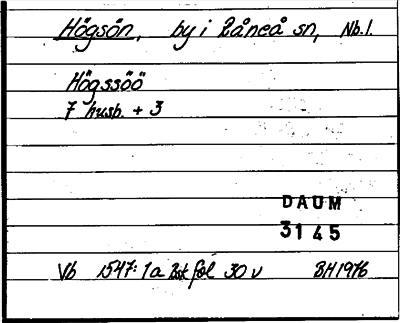 Högsön, by i Råneå sn, Nb.l.
Högssöö
7 husb. + 3
DAUM
3145
Vb 1547: 1a fol 30 v BH 1976